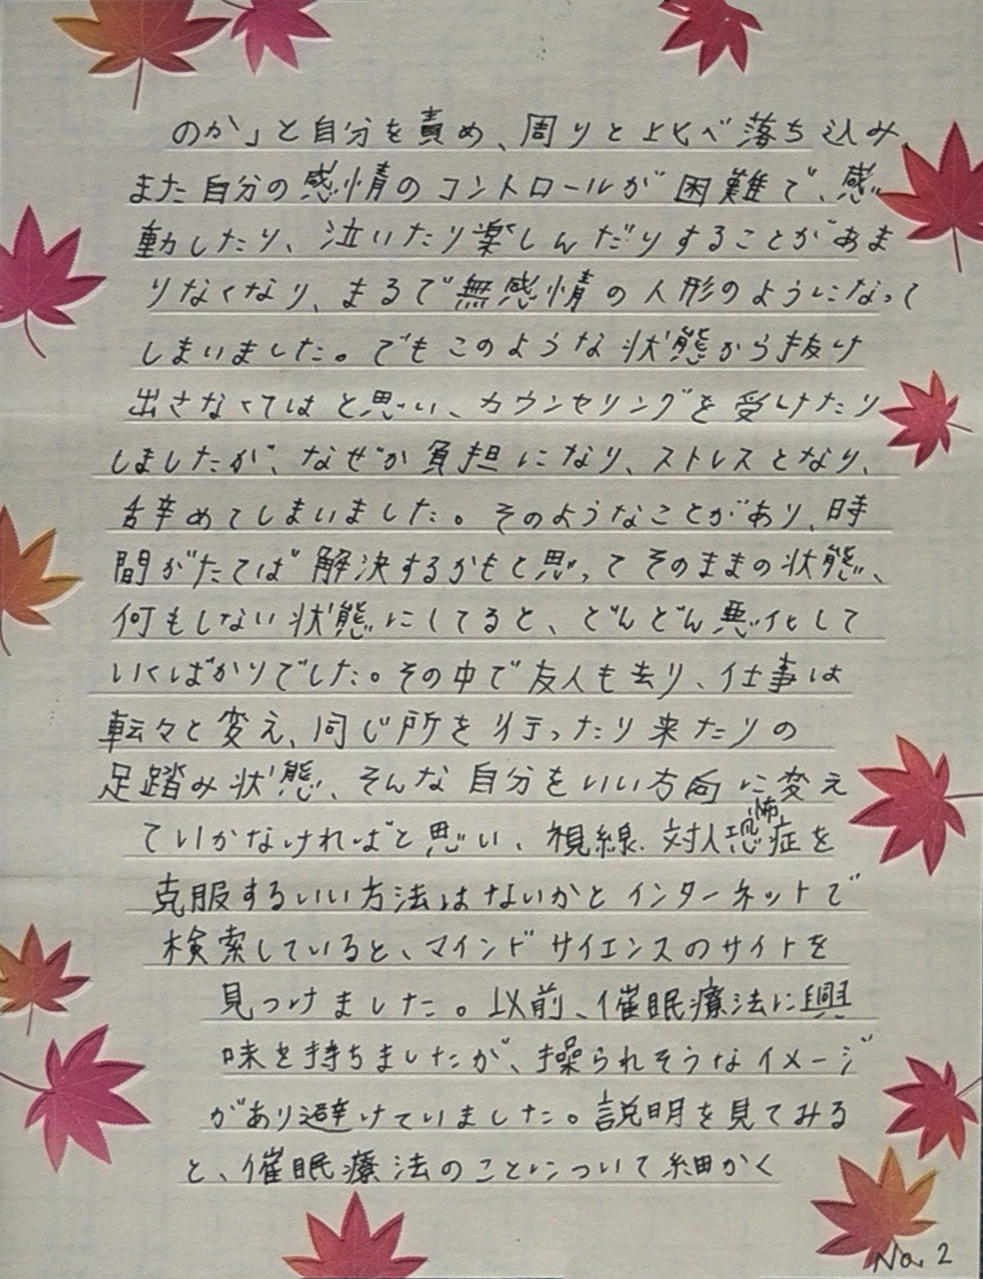 のか」と自分を責め、周りと比べ落ち込み、
また自分の感情のコントロールが困難で、感
動したり、泣いたり楽しんだりすることがあま
りなくなり、まるで無感情の人形のようになって
しまいました。でもこのような状態から抜け
出さなくてはと思い、カウンセリングを受けたり
しましたが、なぜか負担になり、ストレスとなり、
辞めてしまいました。そのようなことがあり、時
間がたてば解決するかもと思ってそのままの状態、
何もしない状態にしてると、どんどん悪化して
いくばかりでした。その中で友人も去り、仕事は
転々と変え、同じ所を行ったり来たりの
足踏み状態、そんな自分をいい方向に変え
ていかなければと思い、視線、対人恐怖症を
克服するいい方法はないかとインターネットで
検索していると、マインドサイエンスのサイトを
見つけました。以前、催眠療法に興
味を持ちましたが、操られそうなイメージ
があり避けていました。説明を見てみる
と、催眠療法のことについて細かく
No. 2